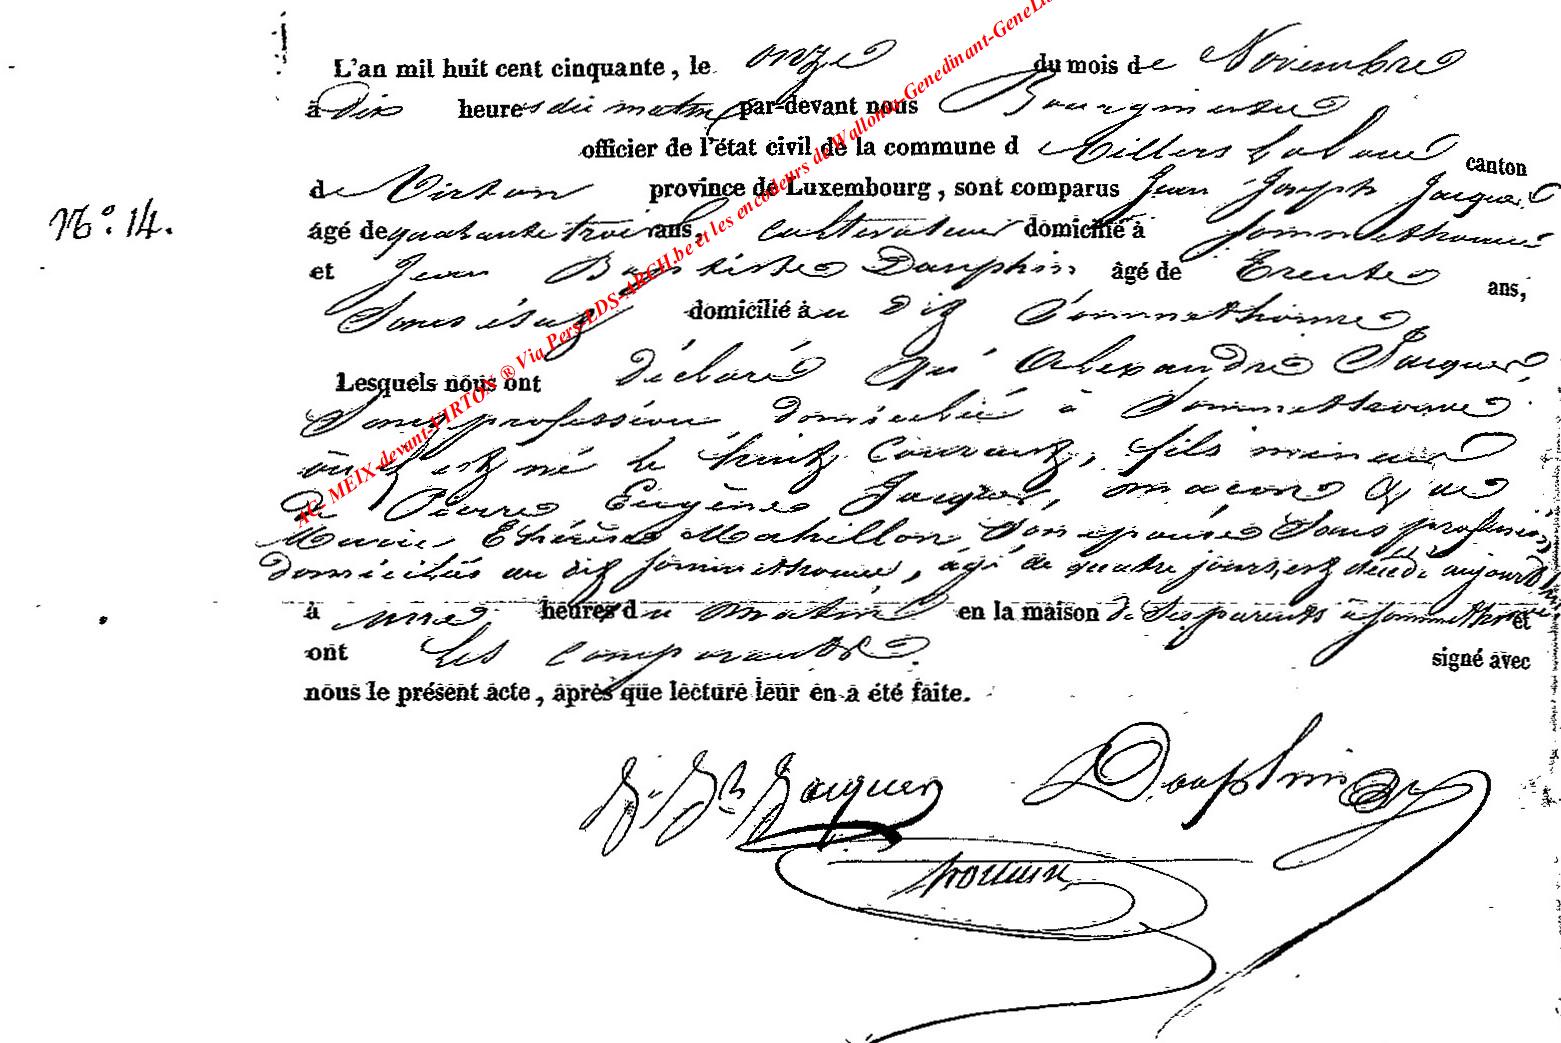 L'an mil huit cent cinquante, le onze du mois de Novembre
à dix heures du matin par-devant nous Bourgmestre
officier de l'état civil de la commune d Villers la loue canton
de Virton province de Luxembourg, sont comparus Jean Joseph Jacques
N.º 14.
âgé de quarante trois ans, cultivateur domicilié à Sommethonne
et Jean Baptiste Dauphin âgé de Trente ans,
domicilié à au dit Sommethonne
Lesquels nous ont déclaré qu' Alexandre Jacques,
Sans profession domicilié à Sommethonne
où il est né le huit Courant, fils mineur
de Pierre Eugène Jacques, maçon & de
Marie Thérèse Mahillon Son épouse Sans profession
domiciliés au dit Sommethonne, âgé de quatre jours, est décédé aujourd'hui
à une heures du matin en la maison de Ses parents à Sommethonne et
ont les comparants signé avec
nous le présent acte, après que lecture leur en a été faite.
J. Jh Jacques Dauphin
AC- MEIX-devant-VIRTON ® Via Pers LDS-ARCH.be et les encodeurs de Wallonia-Genedinant-GeneLux